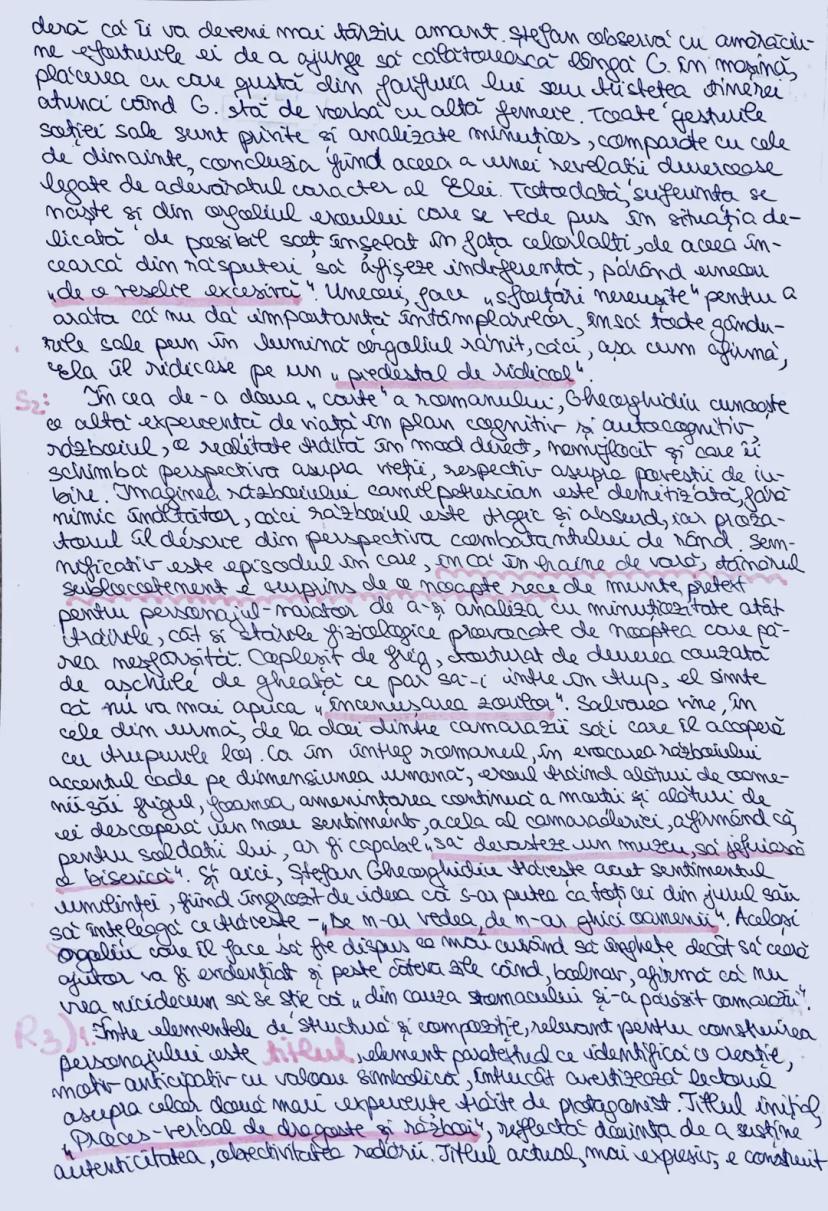 deră că îi va deveni mai târziu amant. Ștefan observă cu amărăciu-
ne eforturile ei de a ajunge să călătorească lângă G. în mașină,
plăcerea cu care gustă din farfuria lui sau tristețea tinerei
atunci când G. stă de vorbă cu altă femeie. Toate gesturile
soției sale sunt privite și analizate minuțios, comparate cu cele
de dinainte, concluzia fiind aceea a unei revelații dureroase
legate de adevăratul caracter al Elei. Totodată, suferința se
naște și din orgoliul eroului care se vede pus în situația de-
licată de posibil soț înșelat în fața celorlalți, de aceea în-
cearcă din răsputeri să afișeze indiferență, părând uneori
„de o veselie excesivă". Uneori, face „sforțări nereușite" pentru a
arăta că nu dă importanță întâmplărilor, însă toate gându-
rile sale pun în lumină orgoliul rănit, căci, așa cum afirmă,
Ela îl ridicase pe un „piedestal de ridicol".
S2: În cea de-a doua „carte" a romanului, Gheorghidiu cunoaște
o altă experiență de viață în plan cognitiv și autocognitiv,
războiul, o realitate trăită în mod direct, nemijlocit și care îi
schimbă perspectiva asupra vieții, respectiv asupra poveștii de iu-
bire. Imaginea războiului camilpetrescian este demitizată, fără
nimic înălțător, căci războiul este tragic și absurd, iar proza-
torul îl descrie din perspectiva combatantului de rând. Sem-
nificativ este episodul în care, încă în haine de vară, tânărul
sublocotenent e surprins de o noapte rea de munte, pretext
pentru personajul-narator de a-și analiza cu minuțiozitate atât
trăirile, cât și stările fiziologice provocate de noaptea care pă-
rea nesfârșită. Copleșit de frig, torturat de durerea cauzată
de așchiile de gheață ce par să-i intre în trup, el simte
că nu va mai apuca „încenușarea zorilor". Salvarea vine, în
cele din urmă, de la doi dintre camarazii săi care îl acoperă
cu trupurile lor. Ca în întreg romanul, în evocarea războiului
accentul cade pe dimensiunea umană, eroul trăind alături de oame-
nii săi frigul, foamea, amenințarea continuă a morții și alături de
ei descoperă un nou sentiment, acela al camaraderiei, afirmând că,
pentru soldații lui, ar fi capabil „să devasteze un muzeu, să jefuiască
o biserică". Și aici, Ștefan Gheorghidiu trăiește acut sentimentul
umilinței, fiind îngrozit de ideea că s-ar putea ca toți cei din jurul său
să înțeleagă ce trăiește – „De m-ar vedea, de m-ar ghici oamenii". Același
orgoliu care îl face să fie dispus ca mai curând să înghețe decât să ceară
ajutor va fi evidențiat și peste câteva zile când, bolnav, afirmă că nu
vrea nicidecum să se știe că „din cauza stomacului și-a părăsit camarazii".
R3) 1. Între elementele de structură și compoziție, relevant pentru construirea
personajului este titlul, element paratextual ce identifică o creație,
motiv anticipativ cu valoare simbolică, întrucât avertizează lectorul
asupra celor două mari experiențe trăite de protagonist. Titlul inițial,
„Proces-verbal de dragoste și război", reflectă dorința de a susține
autenticitatea, obiectivitatea redării. Titlul actual, mai expresiv, e construit